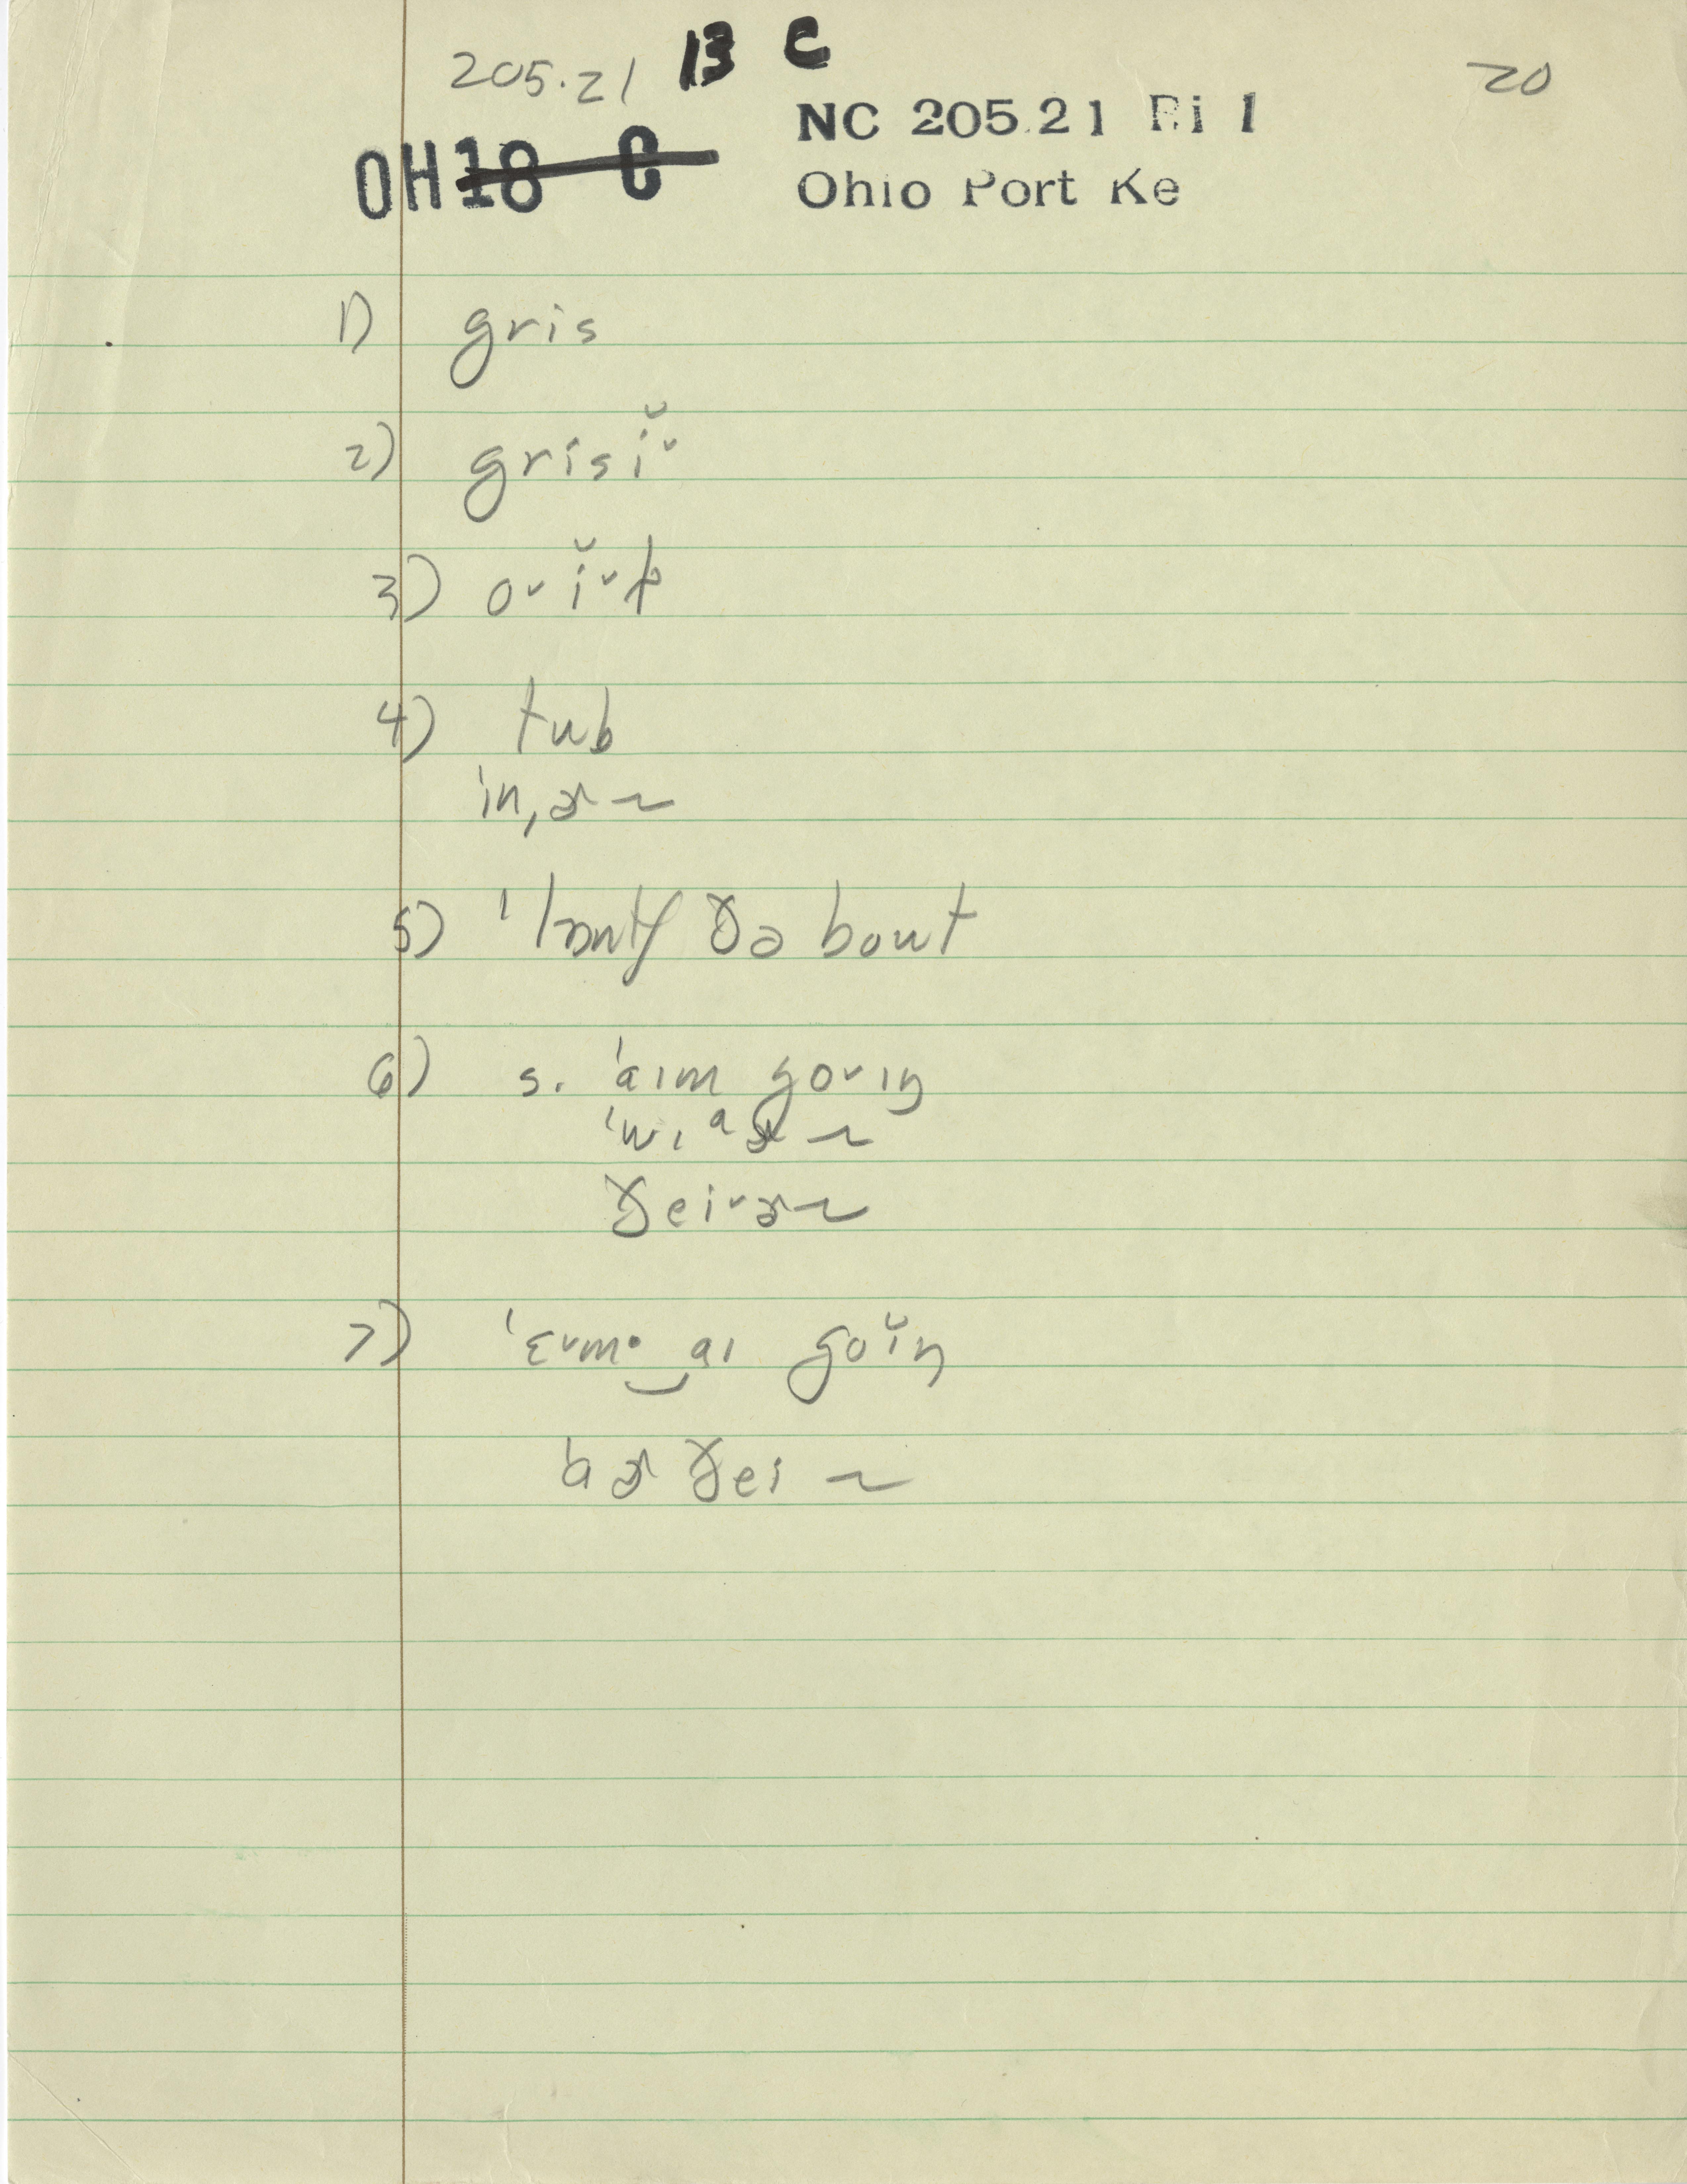 205.21 13 C
20
NC 205.21 Ri 1
OH18 C
Ohio Port Ke
1) gris
2) grisĭ˅
3) o˅ ĭ˅l
4) tub
ˈin,ɚ ~
5) ˈlɔntʃ ðə bout
6) s. ˈaɪm go˅ɪŋ
ðei˅ɚ ~
7) ˈɛ˅m· aɪ goĭŋ
ɚ ðei ~